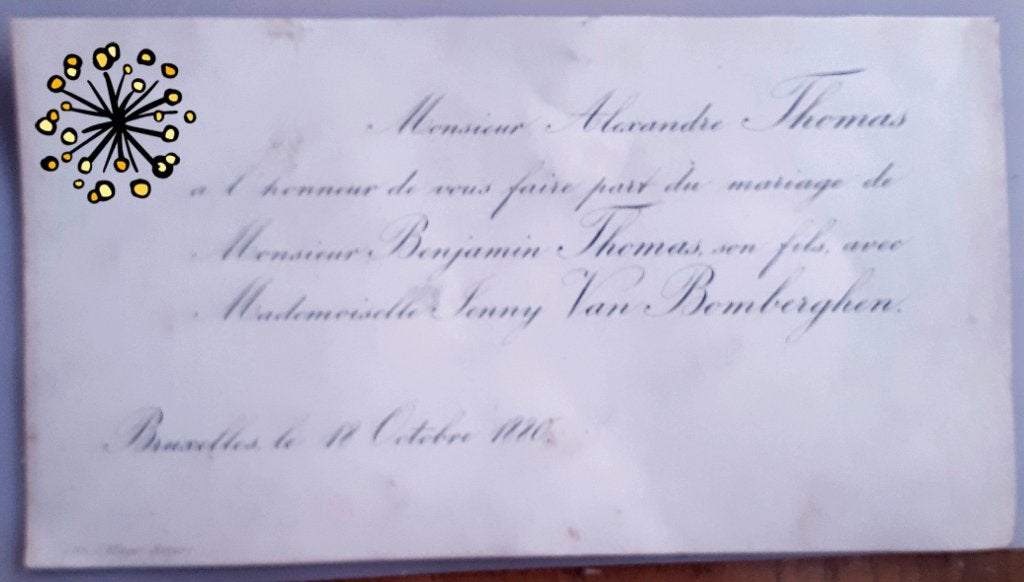 Monsieur Alexandre Thomas
a l'honneur de vous faire part du mariage de
Monsieur Benjamin Thomas, son fils, avec
Mademoiselle Jenny Van Bomberghen.
Bruxelles, le 18 Octobre 1880.